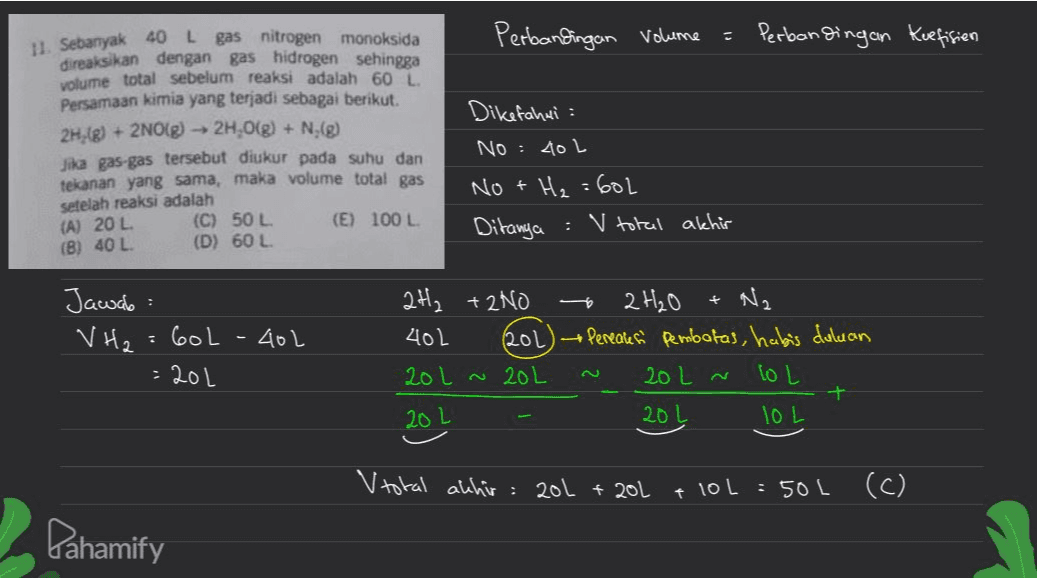 11. Sebanyak 40 L gas nitrogen monoksida
direaksikan dengan gas hidrogen sehingga
volume total sebelum reaksi adalah 60 L.
Persamaan kimia yang terjadi sebagai berikut.
2H₂(g) + 2NO(g) → 2H₂O(g) + N₂(g)
Jika gas-gas tersebut diukur pada suhu dan
tekanan yang sama, maka volume total gas
setelah reaksi adalah
(A) 20 L. (C) 50 L. (E) 100 L.
(B) 40 L. (D) 60 L.
Perbandingan volume = Perbandingan Koefisien
Diketahui :
NO : 40 L
NO + H₂ = 60 L
Ditanya : V total akhir
Jawab :
V H₂ = 60 L - 40 L
= 20 L
2H₂ + 2NO → 2H₂O + N₂
40 L 20 L → Pereaksi pembatas, habis duluan
20 L ~ 20 L ~ 20 L ~ 10 L
20 L - 20 L 10 L
V total akhir : 20 L + 20 L + 10 L = 50 L (C)
Pahamify